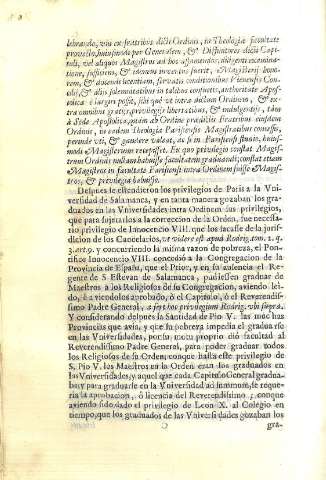 lebrando, vni ex fratribus dicti Ordinis, in Theologia facultate
provecto, huiusmodi per Generalem, & Diffinitores dicti Capi-
tuli, vel aliquos Magistros ad hoc assumendos, diligenti examina-
tione, sufficiens, & idoneus inventus fuerit, Magisterij hono-
rem, & docendi licentiam, servatis conditionibus Viennensis Con-
cilij, & alijs solemnitatibus in talibus consuetis, authoritate Apos-
tolica elargiri possit, sibi què vt intra dictum Ordinem, & ex-
tra omnibus gratijs, privilegijs libertatibus, & indulgentijs, tàm
à Sede Apostolica, quàm ab Ordine prædictis Fratribus eiusdem
Ordinis, in eadem Theologia Parisiensis Magistratibus concessis,
perinde vti, & gaudere valeat, ac si in Parisiensi studio, huius-
modi Magisterium recepisset. Ex quo privilegio constat Magist-
rum Ordinis nullam habuisse facultatem graduandi; constat etiam
Magistros in facultate Parisiensi intra Ordinem fuisse Magist-
ros, & privilegia habuisse.
Despues se estendieron los privilegios de Paris a la Vni-
versidad de Salamanca, y en tanta manera gozaban los gra-
duados en las Vniversidades intra Ordinem sus privilegios,
que para sujetarlos a la correccion de la Orden, fue necessa-
rio privilegio de Innocencio VIII. que los sacasse de la juris-
dicion de los Cancelarios, vt videre est apud Rodrig. tom. 1. q.
3. art. 9. y concurriendo la misma razon de pobreza, el Pon-
tifice Innocencio VIII. concediò a la Congregacion de la
Provincia de España, que el Prior, y en su ausencia el Re-
gente de S. Estevan de Salamanca, pudiessen graduar de
Maestros a los Religiosos de su Congregacion, aviendo lei-
do, è a vicedolos aprobado, ò el Capitulo, ò el Reverendis-
simo Padre General, a fue hoc privilegium Rodrig. vbi supra.
Y considerando despues la Santidad de Pio V. las muchas
Provincias que avia, y que su pobreza impedia el graduarse
en las Vniversidades, por su motu proprio diò facultad al
Reverendissimo Padre General, para poder graduar todos
los Religiosos de su Orden; conque hasta este privilegio de
S. Pio V. los Maestros en la Orden eran los graduados en
las Vniversidades, y aquel que cada Capitulo General gradua-
ba; y para graduarse en la Vniversidad ad summum, se reque-
ria la aprobacion, ò licencia del Reverendissimo; conque
aviendo sido dado el privilegio de Leon X. al Colegio en
tiempo, que los graduados de las Vniversidades gozaban los
gra-